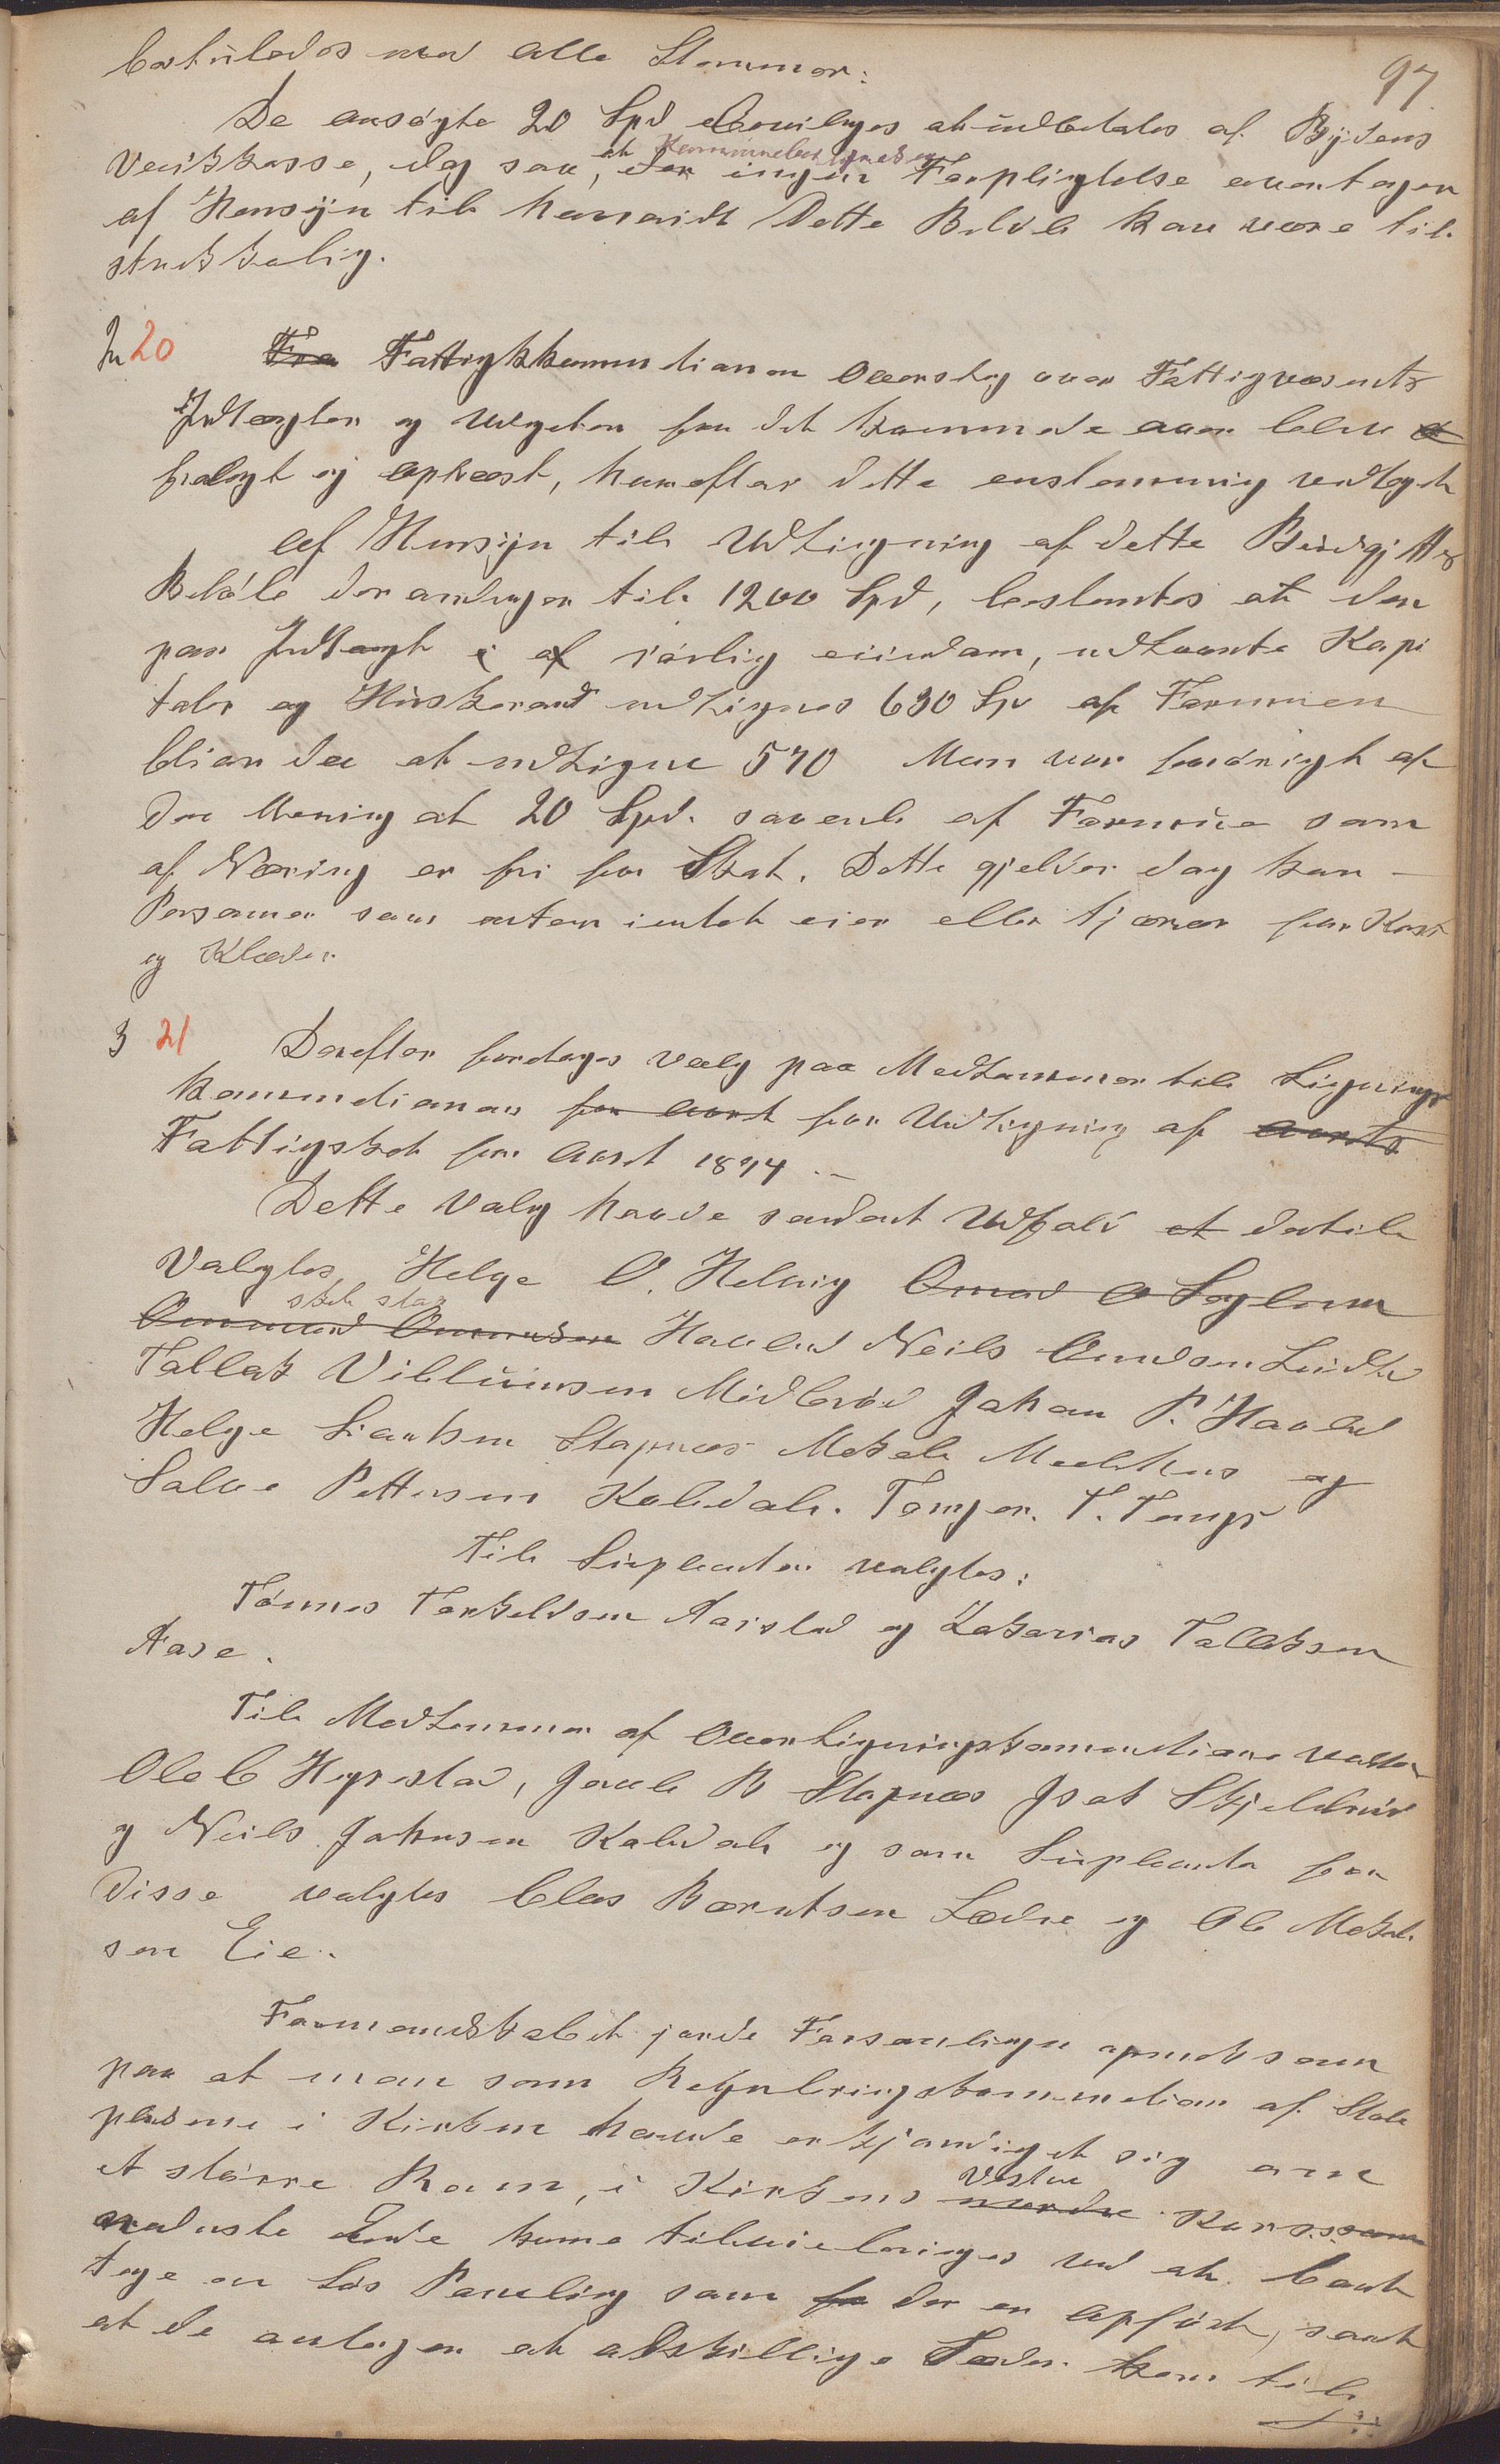 97
besluttedes med alle Stemmer:
De ansøgte 20 Spd bevilges at udbetales af Bÿdens
Veikasse, dog saa, at Kommunebestyrelsen ingen Forpligtelse eventager
af Hensÿn til hvorvidt Dette Beløb kan være til
strækkelig.
20 Fra Fattigkkommisionen Overslag over Fattigvæsents
Indtægter og Udgifter for det kommende aar blev
fralagt og oplæst, hvorefter dette enstemmig vedtaget
af Hensÿn til Udligning af dette Budgjetts
Beløb der andrager til 1200 Spd, besluntes at der
paa Indtægt i af jordlig eiendom, udlaante Kapi
taler og Huskomand udlignes 630 Spd af Formuen
blier da at udligne 570 Man var forøvrigt af
den Mening at 20 Spd. saavel af Formue som
af Næring er fri for Skat. Dette gjelder dog kun –
Personer som enten intet eier eller tjener for Kost
og Klæder
3 21 Derefter foretoges valg paa Medlemmer til Lignings
kommisionen for aaret for Udligning af aarets
Fattigskat for Aaret 1874 . –
Dette Valg havde saadant Udfald at dertil
Valgtes Helge O. Helvig Omund O Løgleim
skal staa
Ommund Ommundsen Haaland Neils Omdsen Leidland
Tallak Villumsen Midbrød Johan P. Haaland
Helge Larsen Stapnes Mekal Mælhus og
Salve Pettersen Kaldal. Tønger. T. Tengs
Til Supleanter valgtes:
Tønnes Torkeldsen Aarstad og Zakarias Tallaksen
Aase.
Til Medlemmer af Overligningskommisione valtes
Ole C Hegrestad, Jacob B Stapnes Isak Skjelbred
og Neils Johnsen Kaldal og som Supleanter for
disse valgtes Clas Berntsen Lædre og Ole Mekal
sen Eie.
Formandskabet jorde Forsamlingen opmerksom
paa at man som Reguleringskommision af Stole
pladsene i Kirken havde erkjøndiget sig om
et større Rom, i Kirkens nordre Vestre Kors som
nederste Ende kunne tilveiebringes ved at bort
tage en Løs Paneling som fo der er opført, samt
at de antager at adskillige Sæder kom til